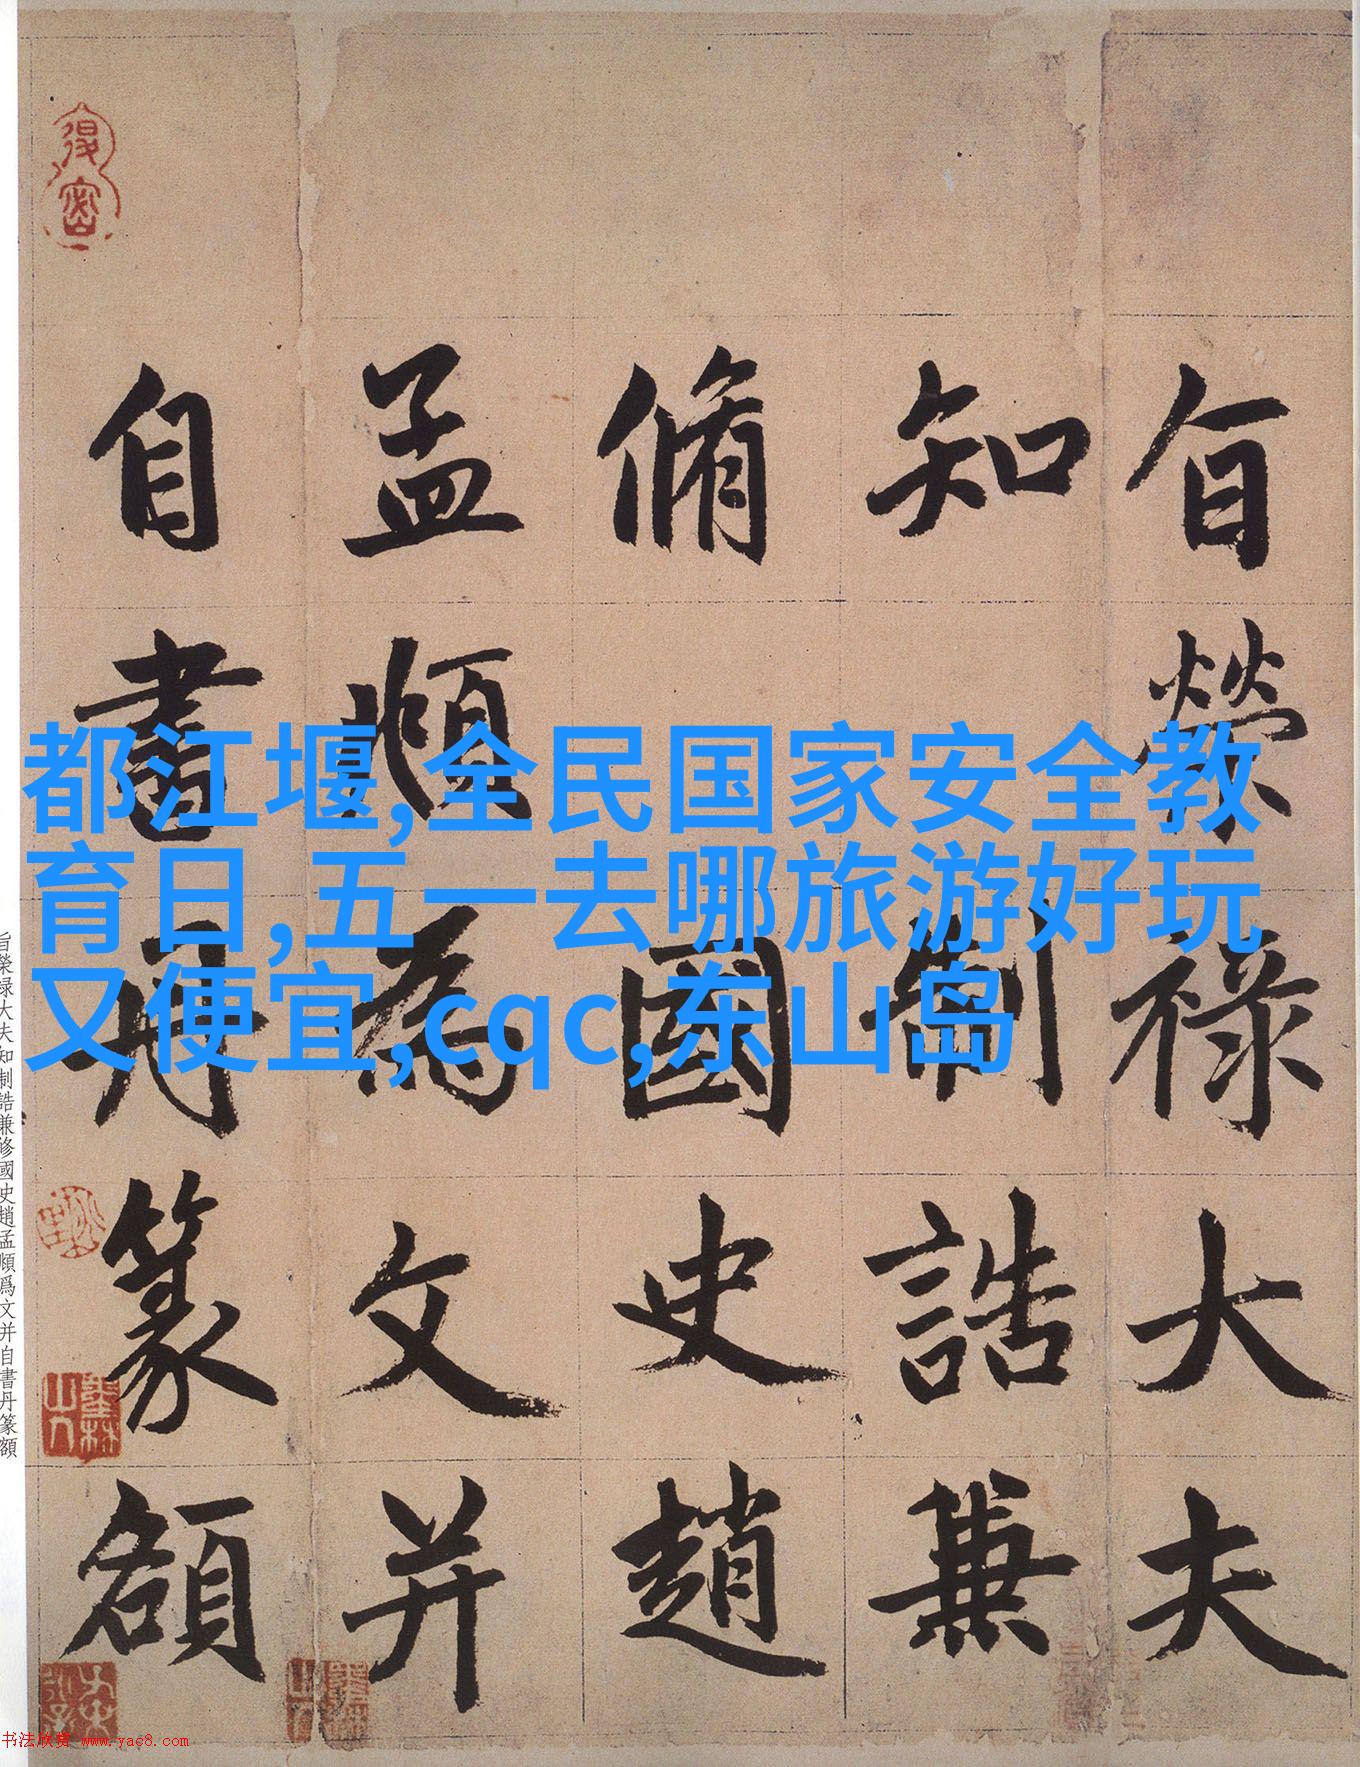 旨榮祿大夫
知制誥兼
脩國史趙
孟頫為文并
自書丹篆額
都江堰,全民国家安全教
育日,五一去哪旅游好玩
又便宜,cqc,东山岛
旨榮禄大夫知制誥兼修國史趙孟頫爲文并自書丹篆額
书法欣赏 www.yac8.com